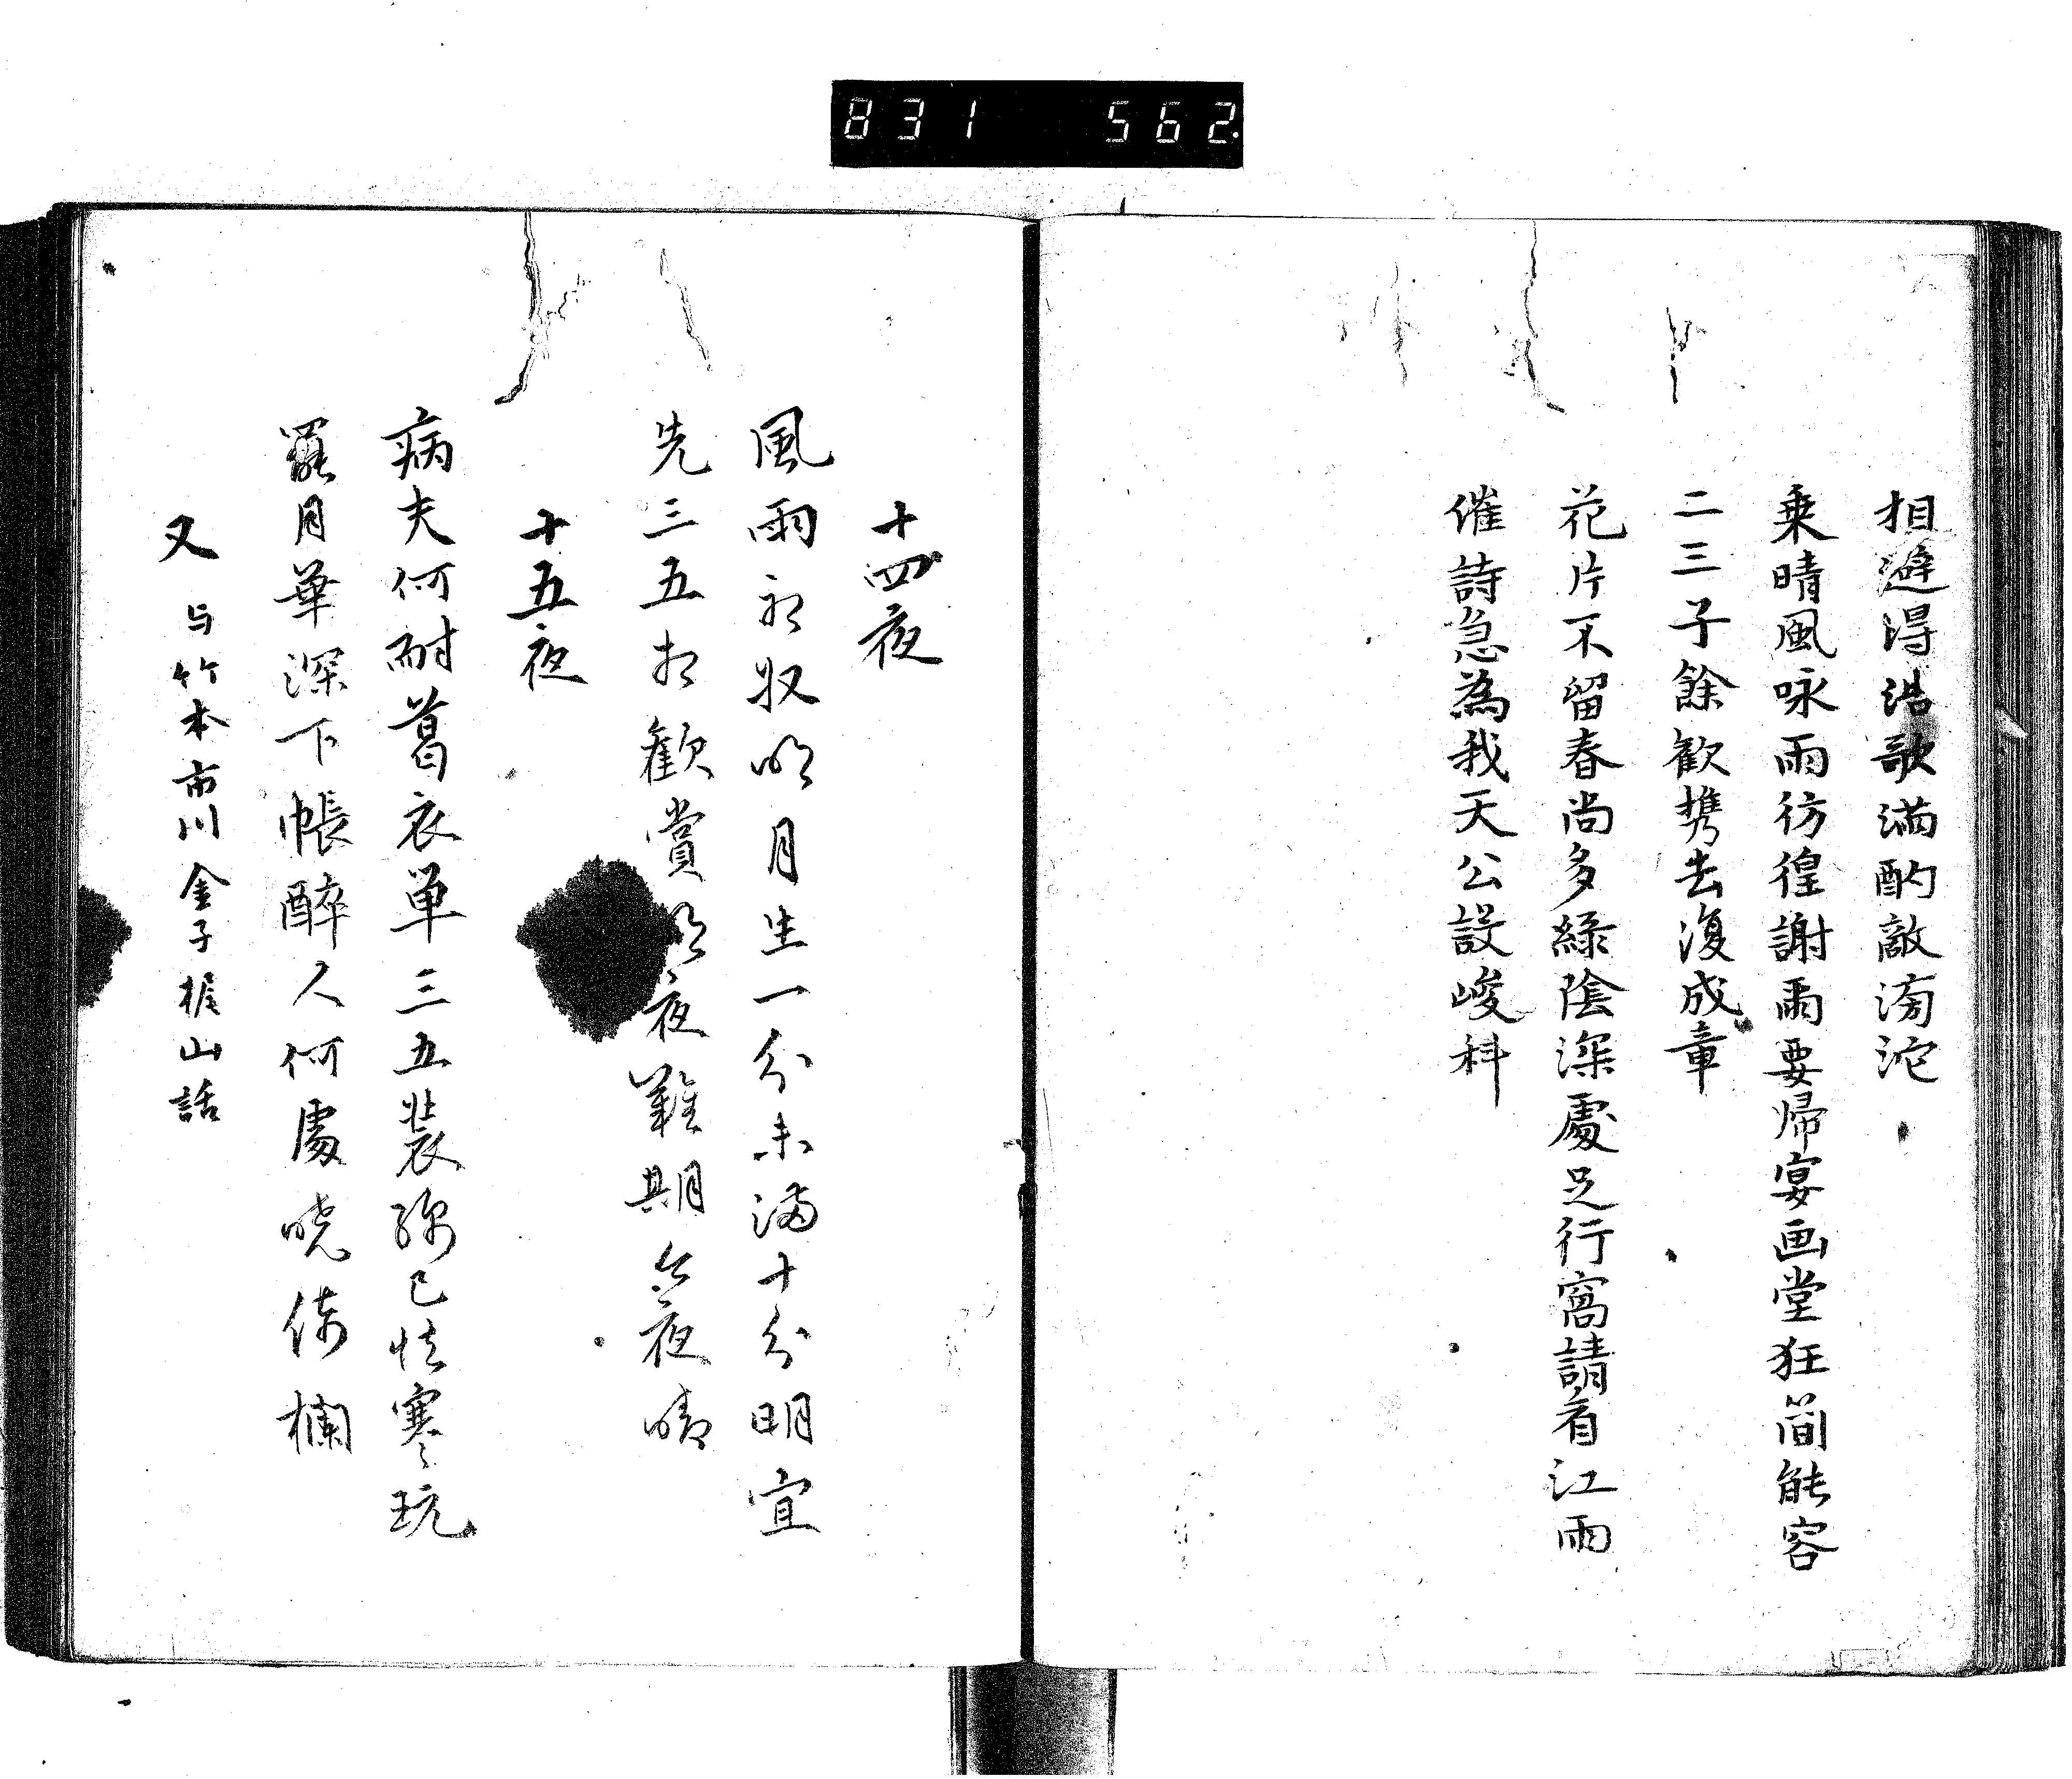 831 562
相避得浩歌満酌敵滂沱
乗晴風咏雨彷徨謝雨要帰宴画堂狂簡能容
二三子餘歓携去復成章
花片不留春尚多緑陰深處足行窩請看江雨
催詩急為我天公設峻科
十四夜
風雨 奴 月生一分未満十分明宜
先三五 歓賞 夜難期今夜晴
十五夜
病夫何耐葛衣単三五裝 已怯寒玩
罷月華深下帳酔人何處暁倚欄
又 与竹本市川金子梶山話